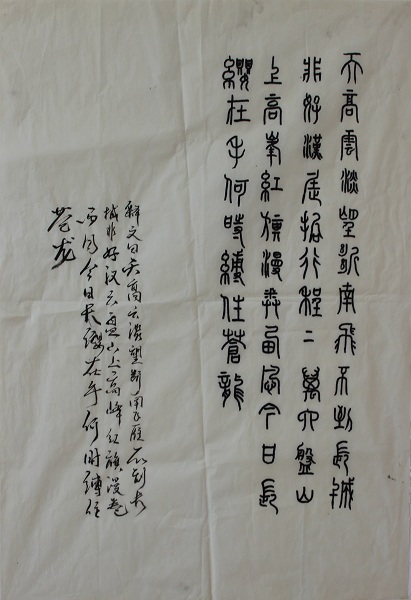 天高雲淡望斷南飛不到長城
非好漢屈指行程二萬六盤山
上高峯紅旗漫卷西風今日長
纓在手何時縛住蒼龍
释文曰天高云淡望断南飞雁不到长
城非好汉六盘山上高峰红旗漫卷
西风今日长缨在手何时缚住
苍龙